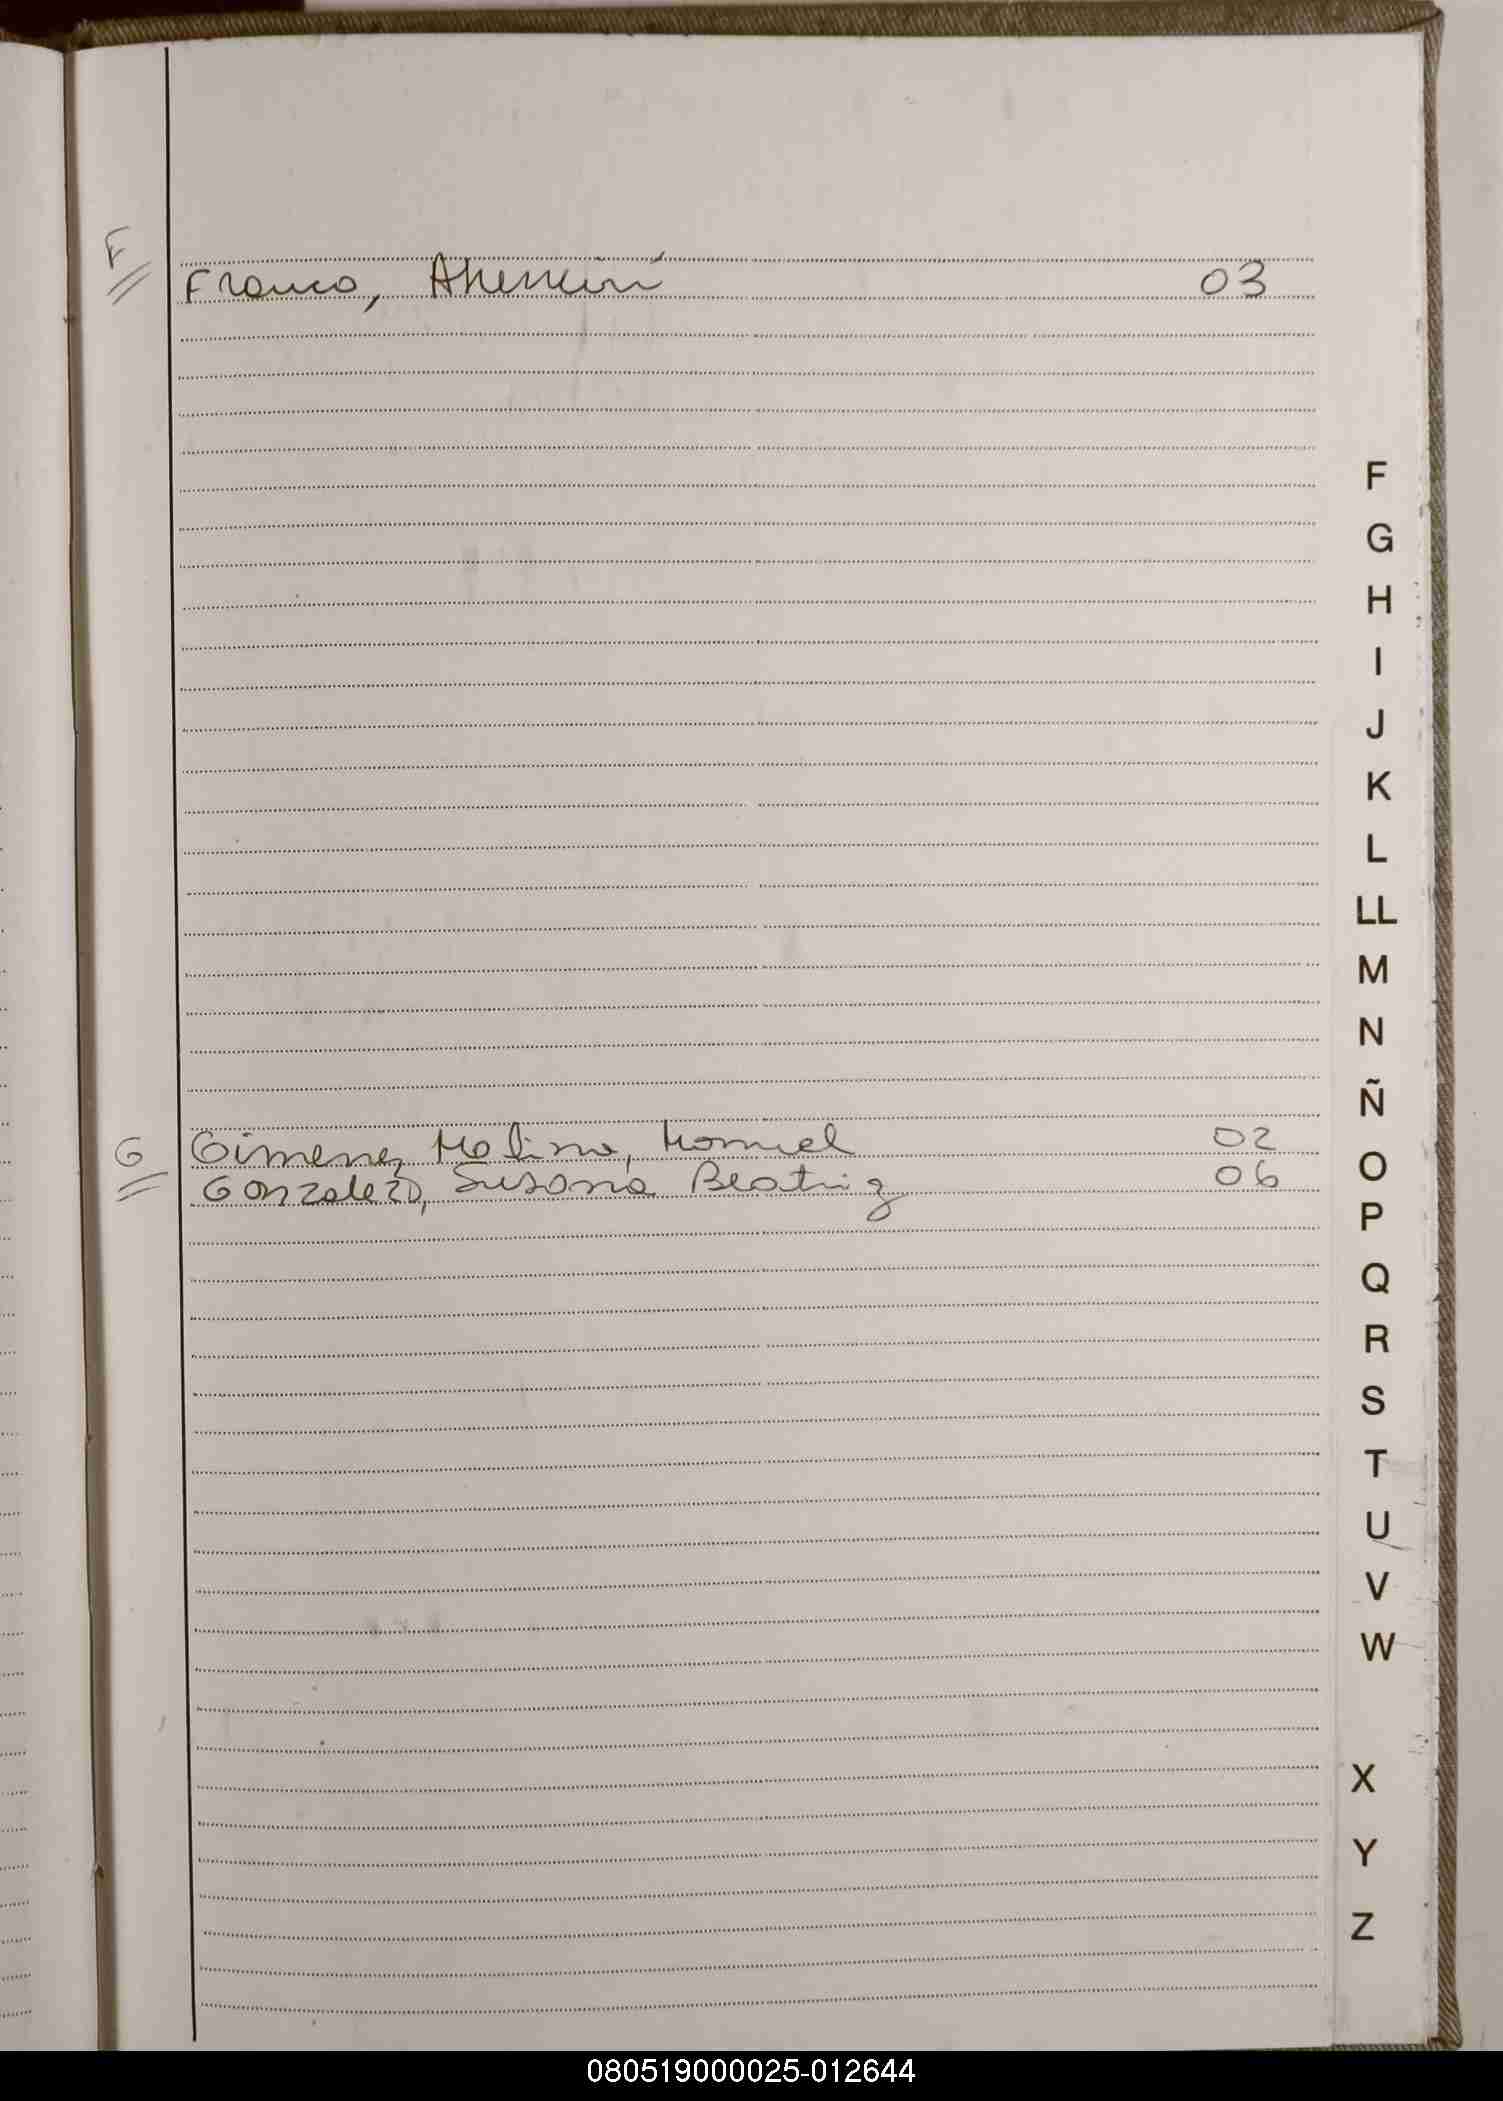 F
Franco, 03
F
G
H
I
J
K
L
LL
M
N
Ñ
G Gimenez Molina, Manuel 02
O
Gonzalezo, Susana Beatriz 06
P
Q
R
S
T
U
V
W
X
Y
Z
080519000025-012644